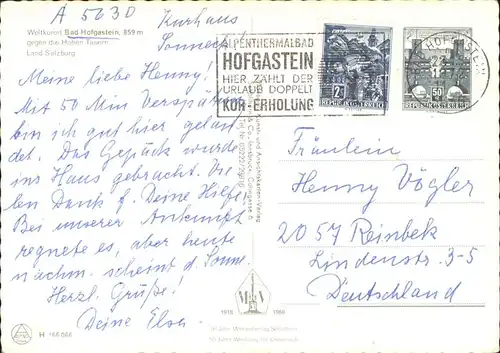 A 5630
Kurhaus
Sonneck!
Weltkurort Bad Hofgastein, 859 m
gegen die Hohen Tauern
Land Salzburg
Meine liebe Henny!
Mit 50 Min Verspätung
bin ich gut hier gelan-
det. Das Gepäck wurde
ins Haus gebracht. Vie-
len Dank f. Deine Hilfe
Bei unserer Ankunft
regnete es, aber heute
nachm. scheint d. Sonne.
Herzl. Grüße!
Deine Elsa
H
1918 1968
ALPENTHERMALBAD
HOFGASTEIN
HIER ZÄHLT DER
URLAUB DOPPELT
KUR-ERHOLUNG
REPUBLIK ÖSTERREICH
50
HOFGASTEIN
Fräulein
Henny Vögler
2057 Reinbek
Lindenstr. 3-5
Deutschland